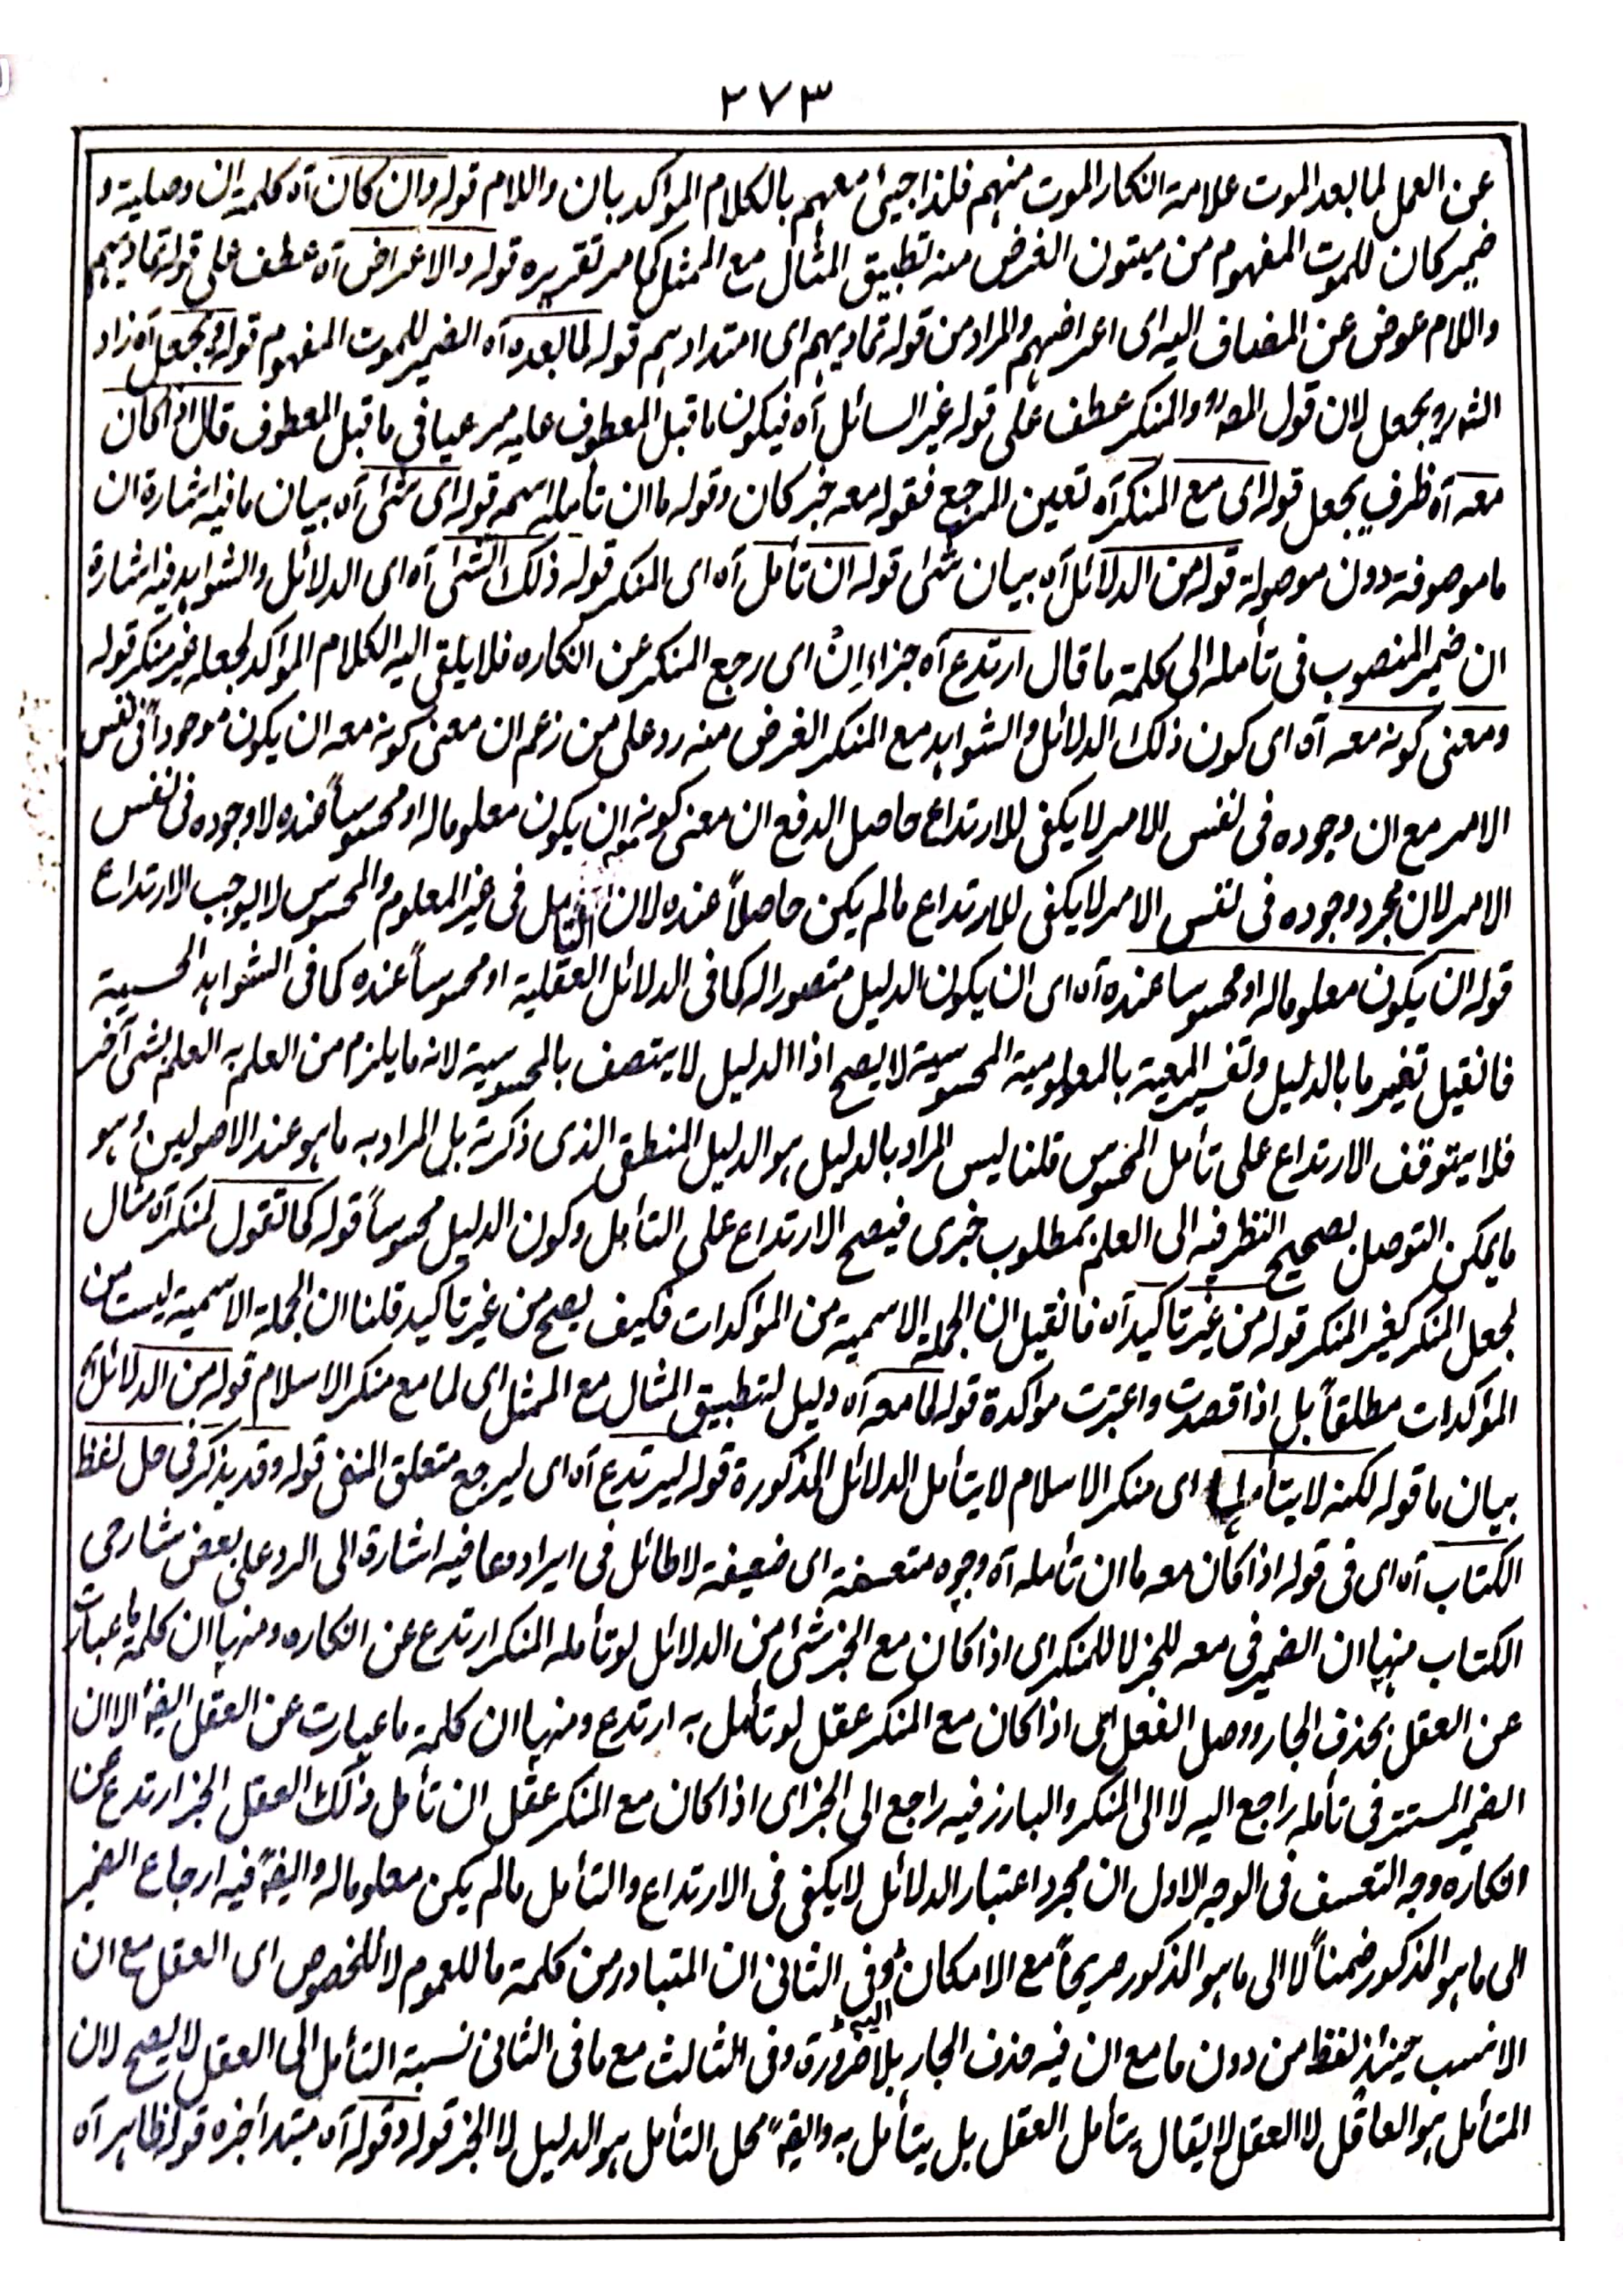 ٢٧٣
عن العمل لما بعد الموت علامة انكار الموت منهم فلذا جيئ معهم بالكلام المؤكد بان واللام قوله وان كان آه كلمة ان وصلية و
ضمير كان للموت المفهوم من ميتون الغرض منه تطبيق المثال مع الممثل كما مر تقريره قوله والاعراض آه عطف على قوله تماديهم
واللام عوض عن المضاف اليه اى اعراضهم والمراد من قوله تماديهم اى امتدادهم قوله لما بعده آه الضمير للموت المفهوم قوله ويجعل آه زاد
الشه ويجعل لان قول المصـ والمنكر عطف على قوله غير السائل آه فيكون ما قبل المعطوف عليه مرعيا فى ما قبل المعطوف قال اذا كان
معه آه ظرف يجعل قوله اى مع المنكر آه تعين المرجع فقوله معه خبر كان وقوله ما ان تأمله اسمه قوله اى شئ آه بيان ما فيه اشارة ان
ما موصوفة دون موصولة قوله من الدلائل آه بيان شئ قوله ان تأمل آه اى المنكر قوله ذلك الشئ آه اى الدلائل والشواهد فيه اشارة
ان ضمير المنصوب فى تأمله الى كلمة ما قال ارتدع آه جزاء اِنْ اى رجع المنكر عن انكاره فلا يلقى اليه الكلام المؤكد لجعله غير منكر قوله
ومعنى كونه معه آه اى كون ذلك الدلائل والشواهد مع المنكر الغرض منه رد على من زعم ان معنى كونه معه ان يكون موجوداً فى نفس
الامر مع ان وجوده فى نفس الامر لا يكفى للارتداع حاصل الدفع ان معنى كونه معه ان يكون معلوما له او محسوساً عنده لا وجوده فى نفس
الامر لان مجرد وجوده فى نفس الامر لا يكفى للارتداع مالم يكن حاصلاً عنده لان التأمل فى غير المعلوم والمحسوس لا يوجب الارتداع
قوله ان يكون معلوما له او محسوسا عنده آه اى ان يكون الدليل متصورا له كما فى الدلائل العقلية او محسوساً عنده كما فى الشواهد الحسية
فانقيل تفير ما بالدليل وتفسير المعية بالمعلومية المحسوسية لا يصح اذا الدليل لا يتصف بالمحسوسية لانه ما يلزم من العلم به العلم بشئ آخر
فلا يتوقف الارتداع على تأمل المحسوس قلنا ليس المراد بالدليل هو الدليل المنطقى الذى ذكرته بل المراد به ما هو عند الاصولين وهو
ما يمكن التوصل بصحيح النظر فيه الى العلم بمطلوب خبرى فيصح الارتداع على التأمل وكون الدليل محسوساً قوله كما تقول لمنكر آه مثال
لجعل المنكر كغير المنكر قوله من غير تاكيد آه فانقيل ان الجملة الاسمية من المؤكدات فكيف يصح من غير تاكيد قلنا ان الجملة الاسمية ليست من
المؤكدات مطلقاً بل اذا قصدت واعتبرت مؤكدة قوله لما معه آه دليل لتطبيق المثال مع الممثل اى لما مع منكر الاسلام قوله من الدلائل آه
بيان ما قوله لكنه لا يتأملها اى منكر الاسلام لا يتأمل الدلائل المذكورة قوله ليرتدع آه اى ليرجع متعلق المنفى قوله وقد يذكر فى حل لفظ
الكتاب آه اى فى قوله اذا كان معه ما ان تأمله آه وجوه متعسفة اى ضعيفة لا طائل فى ايرادها فيه اشارة الى الرد على بعض شارحى
الكتاب منها ان الضمير فى معه للخبر لا للمنكر اى اذا كان مع الخبر شئ من الدلائل لو تأمله المنكر ارتدع عن انكاره ومنها ان كلمة ما عبارت
عن العقل بحذف الجار ووصل الفعل اى اذا كان مع المنكر عقل لو تأمل به ارتدع ومنها ان كلمة ما عبارت عن العقل ايضاً الا ان
الضمير المستتر فى تأمله راجع اليه لا الى المنكر والبارز فيه راجع الى الخبر اى اذا كان مع المنكر عقل ان تأمل ذلك العقل الخبر ارتدع عن
انكاره وجه التعسف فى الوجه الاول ان مجرد اعتبار الدلائل لا يكفى فى الارتداع والتأمل مالم يكن معلوما له وايضاً فيه ارجاع الضمير
الى ما هو المذكور ضمناً لا الى ما هو المذكور صريحاً مع الامكان وفى الثانى ان المتبادر من كلمة ما للعموم لا للخصوص اى العقل مع ان
الانسب حينئذ لفظ من دون ما مع ان فيه حذف الجار بلا ضرورة وفى الثالث مع ما فى الثانى نسبة التأمل الى العقل لا يصح لان
المتأمل هو العاقل لا العقل لا يقال يتأمل العقل بل يتأمل به وايضاً محل التأمل هو الدليل لا الخبر قوله وقوله آه مبتدأ خبره قوله ظاهر آه